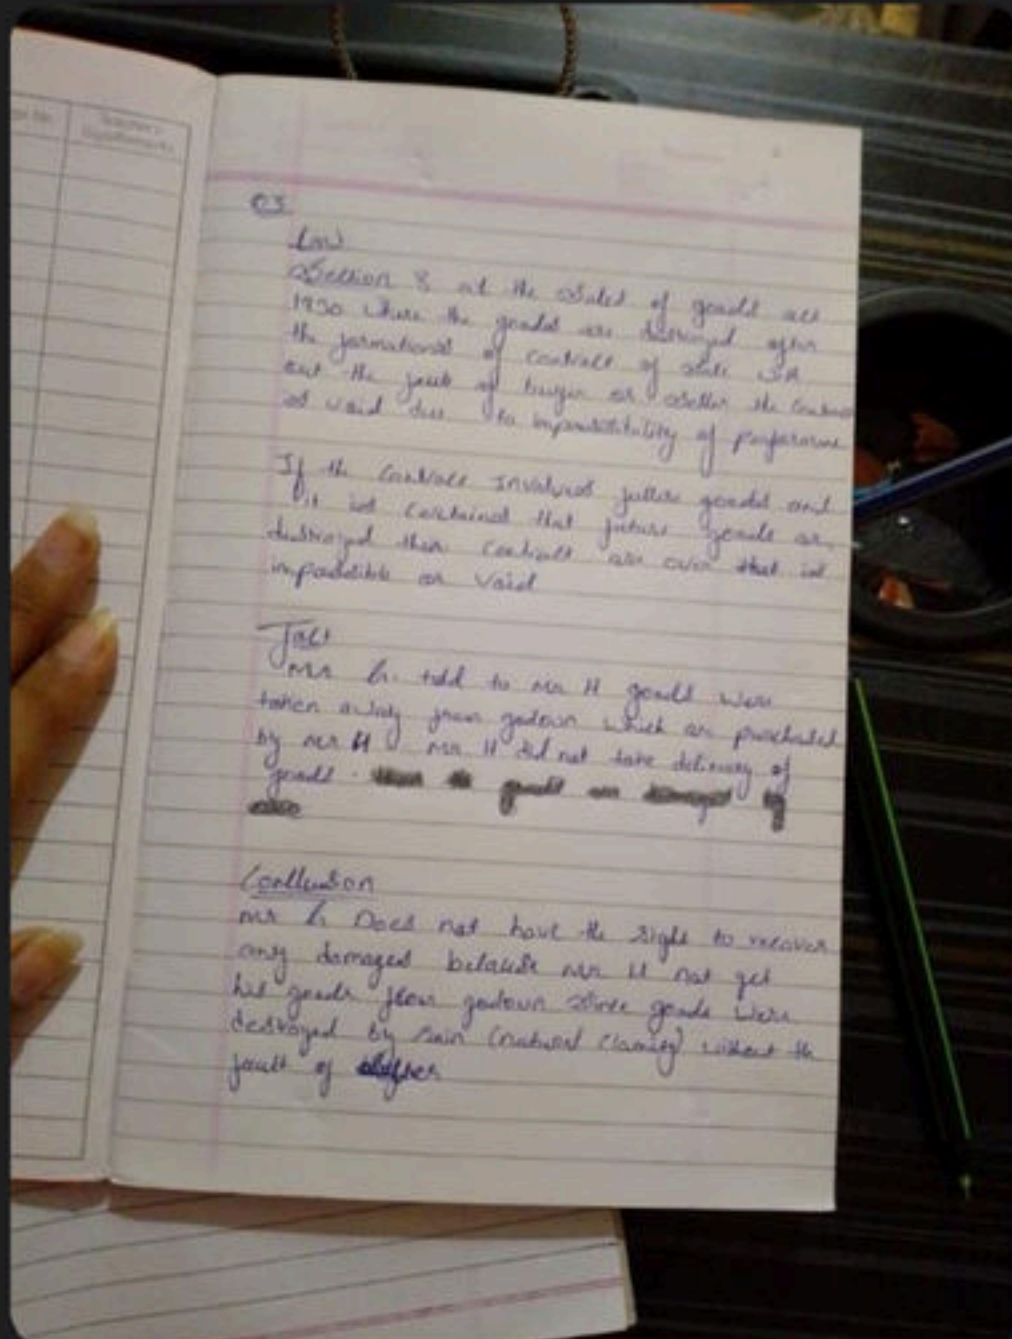 Q3
Law
Section 8 at the Sales of goods act
1930 where the goods are destroyed after
the formational of contract of sale with
out the fault of buyer or seller the contract
is void due to impossibility of performance
If the contract Involves future goods and
it is contained that future goods are
destroyed then contract are over that is
impossible or void
Fact
Mr G. told to Mr H goods were
taken away from godown which are purchased
by Mr H Mr H did not take delivery of
goods.
Conclusion
Mr G Does not have the right to recover
any damages because Mr H not get
his goods from godown Since goods were
destroyed by rain (natural clamity) without the
fault of